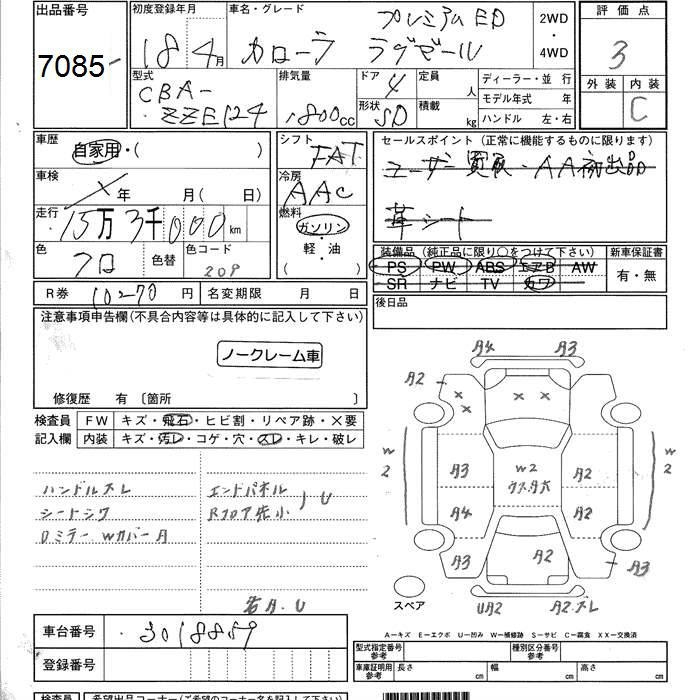 出品番号 初度登録年月 車名・グレード 評価点
7085 18年4月 カローラ ラグゼール プレミアムED 2WD・4WD 3
型式 CBA-ZZE124 排気量 1800cc ドア 4 形状 SD 定員 人 積載 kg
ディーラー・並 行
モデル年式 年
ハンドル 左・右
外装 内装 C
車歴 自家用・( )
シフト FAT
車検 × 年 月( 日)
冷房 AAC
走行 15万3千000km
燃料 ガソリン・軽・油 ( )
色 クロ 色替 色コード 209
R券 10270円 名変期限 月 日
セールスポイント(正常に機能するものに限ります)
ユーザー買取・AA初出品
革シート
装備品(純正品に限り○をつけて下さい) 新車保証書
PS PW ABS エアB AW 有・無
SR ナビ TV カワ
後日品
注意事項申告欄(不具合内容等は具体的に記入して下さい)
ノークレーム車
修復歴 有 〔箇所 〕
検査員 FW キズ・飛石・ヒビ割・リペア跡・×要
記入欄 内装 キズ・汚レ・コゲ・穴・スレ・キレ・破レ
ハンドルスレ エンドパネル
シートシワ Rフロア先小 U
Dミラー Wカバー A
A4 A3
A2 × × ×
W2 A3 W2 A2 W2
A4 A2
A3 A2 A3
スペア UA2 A2.スレ
A-キズ E-エクボ U-凹み W-補修跡 S-サビ C-腐食 XX-交換済
車台番号 3018859
登録番号
型式指定番号 参考 種別区分番号 参考
車庫証明用 参考 長さ cm 幅 cm 高さ cm
検査員 希望出品コーナー(ご希望のコーナー名を記入して下さい)